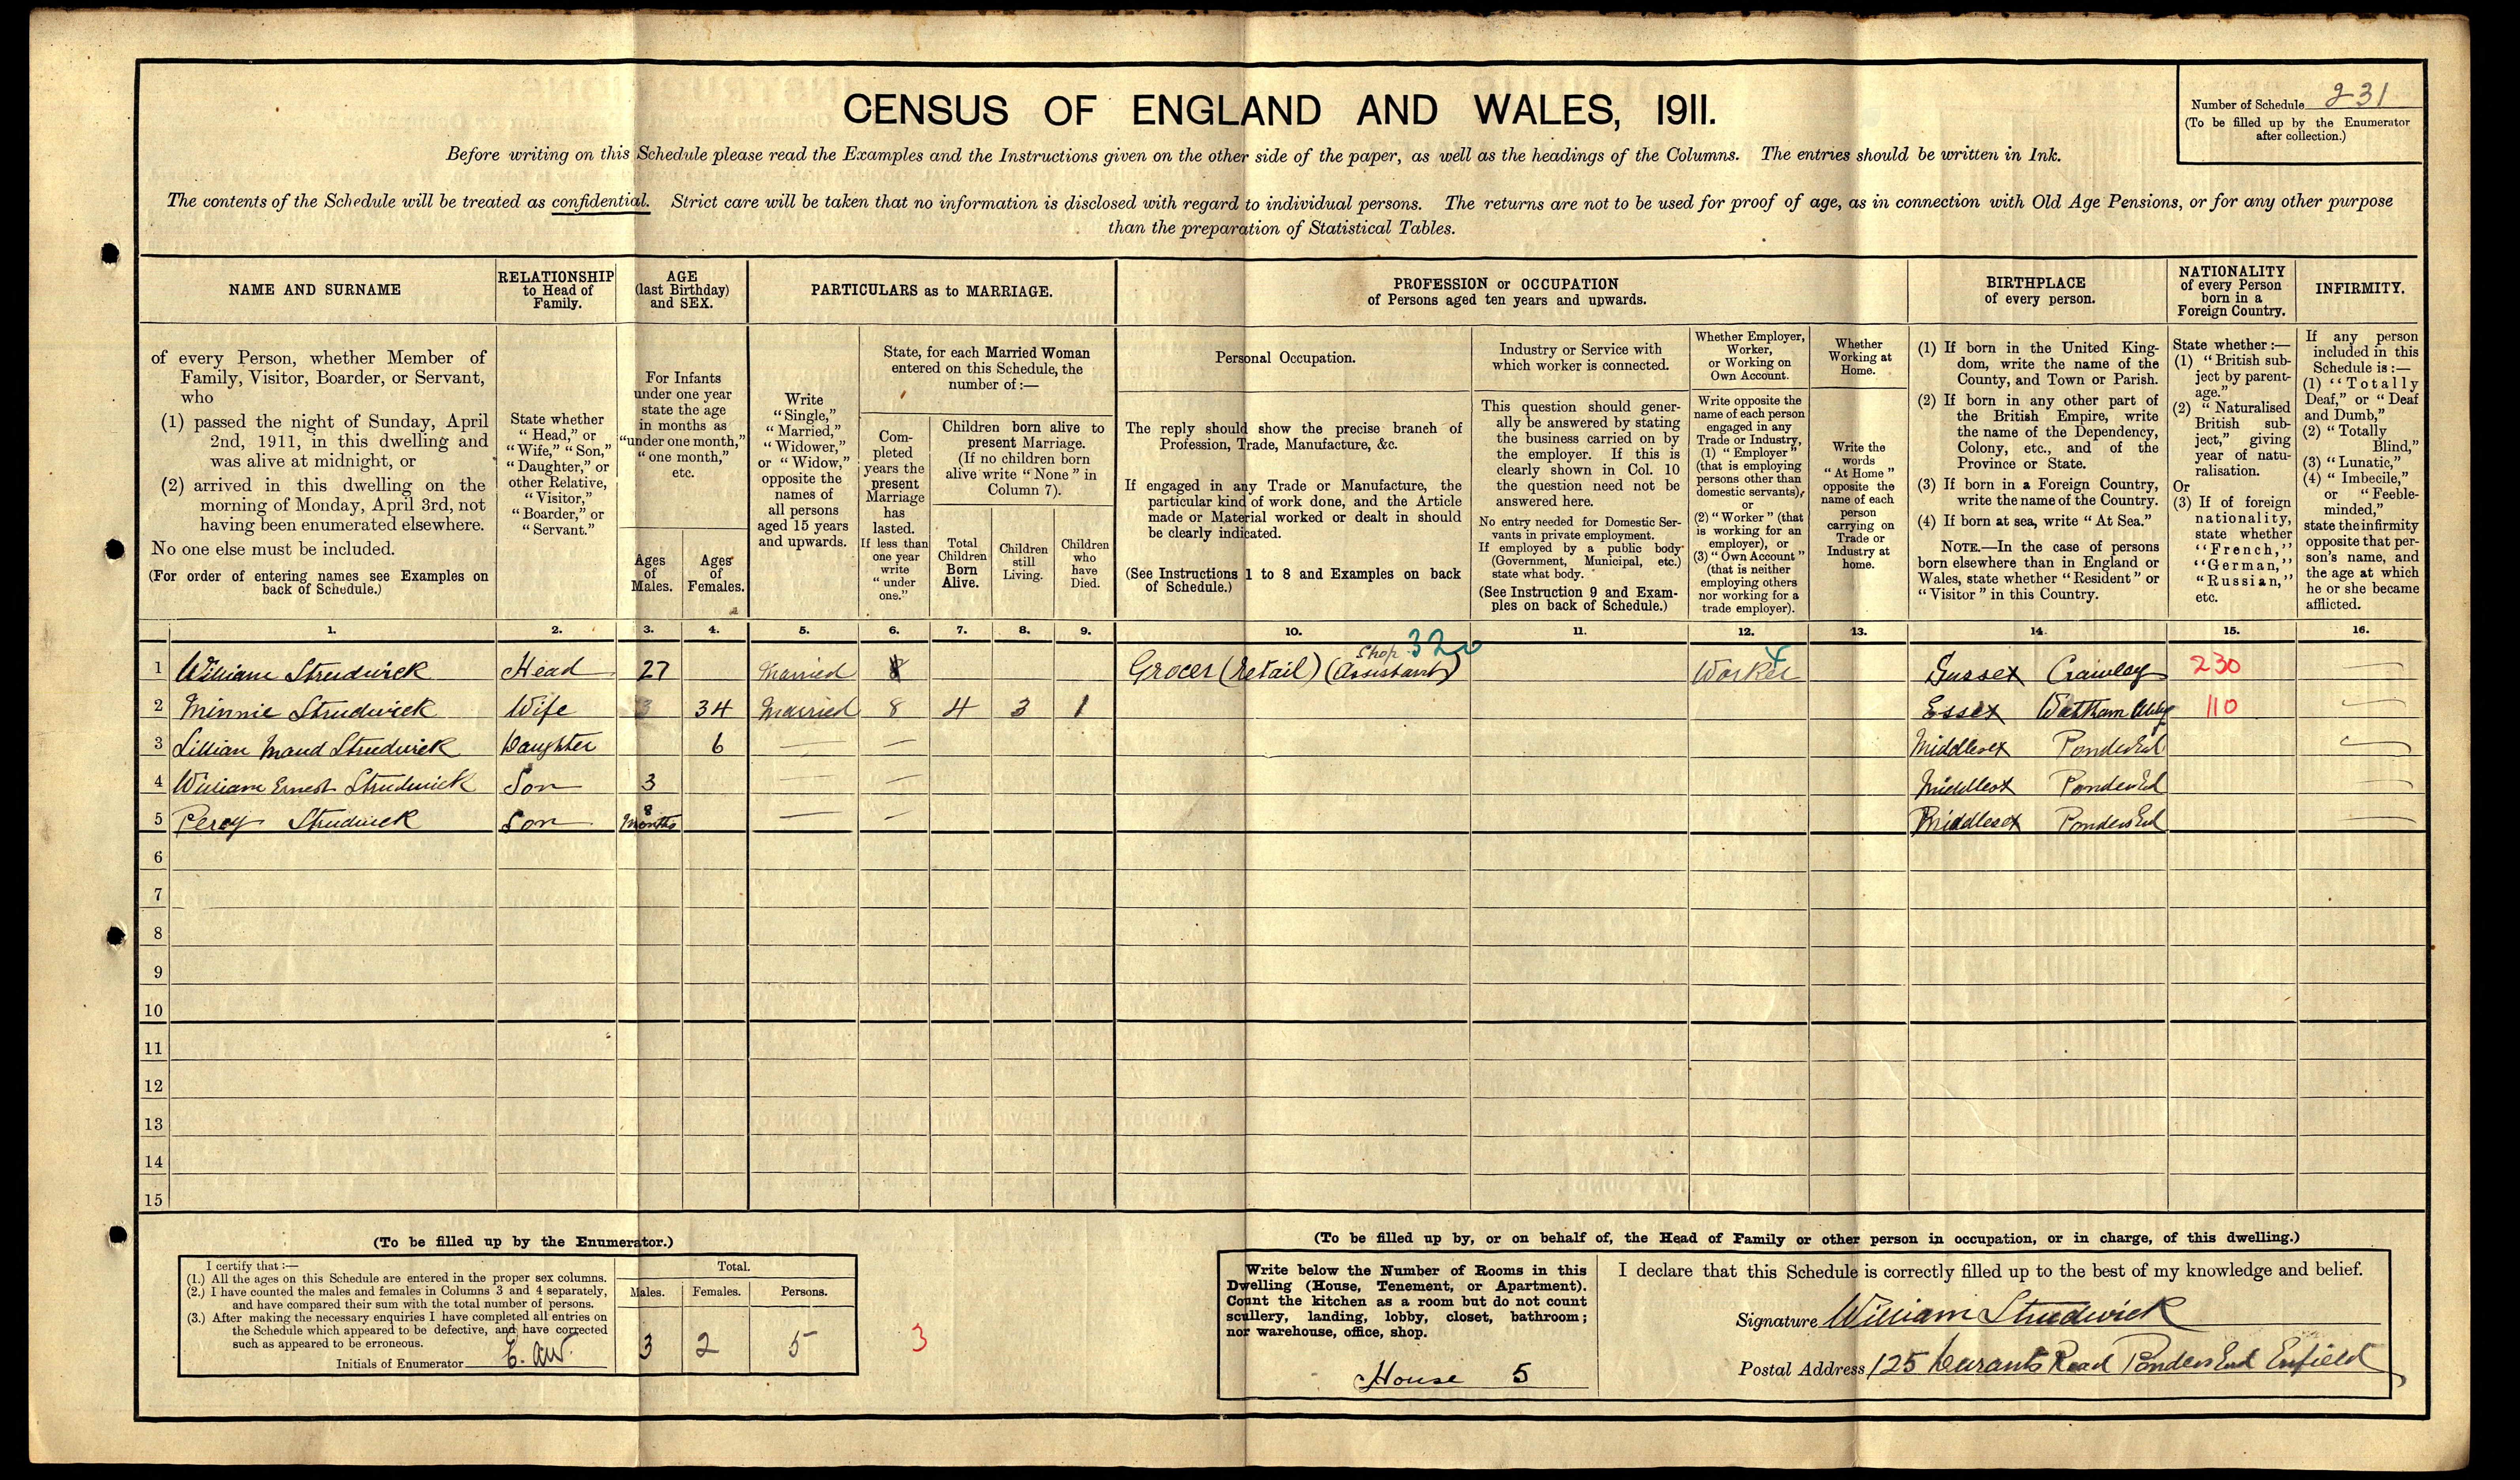 CENSUS OF ENGLAND AND WALES, 1911.
Number of Schedule 231
(To be filled up by the Enumerator
after collection.)
Before writing on this Schedule please read the Examples and the Instructions given on the other side of the paper, as well as the headings of the Columns. The entries should be written in Ink.
The contents of the Schedule will be treated as confidential. Strict care will be taken that no information is disclosed with regard to individual persons. The returns are not to be used for proof of age, as in connection with Old Age Pensions, or for any other purpose
than the preparation of Statistical Tables.
NAME AND SURNAME
of every Person, whether Member of
Family, Visitor, Boarder, or Servant,
who
(1) passed the night of Sunday, April
2nd, 1911, in this dwelling and
was alive at midnight, or
(2) arrived in this dwelling on the
morning of Monday, April 3rd, not
having been enumerated elsewhere.
No one else must be included.
(For order of entering names see Examples on
back of Schedule.)
RELATIONSHIP
to Head of
Family.
State whether
"Head," or
"Wife," "Son,"
"Daughter," or
other Relative,
"Visitor,"
"Boarder," or
"Servant."
AGE
(last Birthday)
and SEX.
For Infants
under one year
state the age
in months as
"under one month,"
"one month,"
etc.
Ages
of
Males.
Ages
of
Females.
PARTICULARS as to MARRIAGE.
Write
"Single,"
"Married,"
"Widower,"
or "Widow,"
opposite the
names of
all persons
aged 15 years
and upwards.
State, for each Married Woman
entered on this Schedule, the
number of :—
Com-
pleted
years the
present
Marriage
has
lasted.
If less than
one year
write
"under
one."
Children born alive to
present Marriage.
(If no children born
alive write "None" in
Column 7).
Total
Children
Born
Alive.
Children
still
Living.
Children
who
have
Died.
PROFESSION or OCCUPATION
of Persons aged ten years and upwards.
Personal Occupation.
The reply should show the precise branch of
Profession, Trade, Manufacture, &c.
If engaged in any Trade or Manufacture, the
particular kind of work done, and the Article
made or Material worked or dealt in should
be clearly indicated.
(See Instructions 1 to 8 and Examples on back
of Schedule.)
Industry or Service with
which worker is connected.
This question should gener-
ally be answered by stating
the business carried on by
the employer. If this is
clearly shown in Col. 10
the question need not be
answered here.
No entry needed for Domestic Ser-
vants in private employment.
If employed by a public body
(Government, Municipal, etc.)
state what body.
(See Instruction 9 and Exam-
ples on back of Schedule.)
Whether Employer,
Worker,
or Working on
Own Account.
Write opposite the
name of each person
engaged in any
Trade or Industry,
(1) "Employer"
(that is employing
persons other than
domestic servants),
or
(2) "Worker" (that
is working for an
employer), or
(3) "Own Account"
(that is neither
employing others
nor working for a
trade employer).
Whether
Working at
Home.
Write the
words
"At Home"
opposite the
name of each
person
carrying on
Trade or
Industry at
home.
BIRTHPLACE
of every person.
(1) If born in the United King-
dom, write the name of the
County, and Town or Parish.
(2) If born in any other part of
the British Empire, write
the name of the Dependency,
Colony, etc., and of the
Province or State.
(3) If born in a Foreign Country,
write the name of the Country.
(4) If born at sea, write "At Sea."
NOTE.—In the case of persons
born elsewhere than in England or
Wales, state whether "Resident" or
"Visitor" in this Country.
NATIONALITY
of every Person
born in a
Foreign Country.
State whether :—
(1) "British sub-
ject by parent-
age."
(2) "Naturalised
British sub-
ject," giving
year of natu-
ralisation.
Or
(3) If of foreign
nationality,
state whether
"French,"
"German,"
"Russian,"
etc.
INFIRMITY.
If any person
included in this
Schedule is:—
(1) "Totally
Deaf," or "Deaf
and Dumb,"
(2) "Totally
Blind,"
(3) "Lunatic,"
(4) "Imbecile,"
or "Feeble-
minded,"
state the infirmity
opposite that per-
son's name, and
the age at which
he or she became
afflicted.
1. 2. 3. 4. 5. 6. 7. 8. 9. 10. 11. 12. 13. 14. 15. 16.
Shop 320
1 William Strudwick Head 27 Married 8 Grocer (Retail) (Assistant) Worker 4 Sussex Crawley 230 —
2 Minnie Strudwick Wife 34 Married 8 4 3 1 Essex Waltham Abby 110 —
3 Lillian Maud Strudwick Daughter 6 — — Middlesex Ponders End —
4 William Ernest Strudwick Son 3 — — Middlesex Ponders End —
5 Percy Strudwick Son 8 Months — — Middlesex Ponders End —
6
7
8
9
10
11
12
13
14
15
(To be filled up by the Enumerator.)
I certify that :—
(1.) All the ages on this Schedule are entered in the proper sex columns.
(2.) I have counted the males and females in Columns 3 and 4 separately,
and have compared their sum with the total number of persons.
(3.) After making the necessary enquiries I have completed all entries on
the Schedule which appeared to be defective, and have corrected
such as appeared to be erroneous.
Initials of Enumerator E. AW.
Total.
Males. Females. Persons.
3 2 5
3
(To be filled up by, or on behalf of, the Head of Family or other person in occupation, or in charge, of this dwelling.)
Write below the Number of Rooms in this
Dwelling (House, Tenement, or Apartment).
Count the kitchen as a room but do not count
scullery, landing, lobby, closet, bathroom;
nor warehouse, office, shop.
House 5
I declare that this Schedule is correctly filled up to the best of my knowledge and belief.
Signature William Strudwick
Postal Address 125 Durants Road Ponders End Enfield